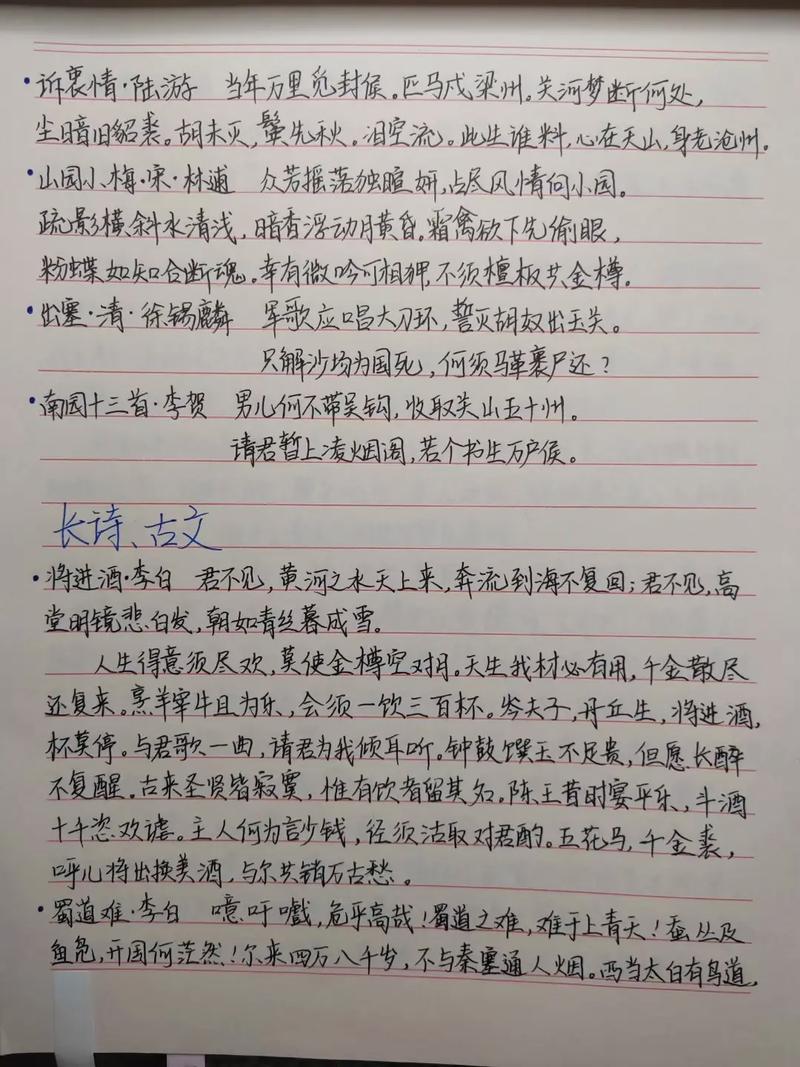 诉衷情·陆游 当年万里觅封侯。匹马戍梁州。关河梦断何处,
尘暗旧貂裘。胡未灭,鬓先秋。泪空流。此生谁料,心在天山,身老沧州。
山园小梅·宋·林逋 众芳摇落独暄妍,占尽风情向小园。
疏影横斜水清浅,暗香浮动月黄昏。霜禽欲下先偷眼,
粉蝶如知合断魂。幸有微吟可相狎,不须檀板共金樽。
出塞·清·徐锡麟 军歌应唱大刀环,誓灭胡奴出玉关。
只解沙场为国死,何须马革裹尸还?
南园十三首·李贺 男儿何不带吴钩,收取关山五十州。
请君暂上凌烟阁,若个书生万户侯。
长诗、古文
将进酒·李白 君不见,黄河之水天上来,奔流到海不复回;君不见,高
堂明镜悲白发,朝如青丝暮成雪。
人生得意须尽欢,莫使金樽空对月。天生我材必有用,千金散尽
还复来。烹羊宰牛且为乐,会须一饮三百杯。岑夫子,丹丘生,将进酒,
杯莫停。与君歌一曲,请君为我倾耳听。钟鼓馔玉不足贵,但愿长醉
不复醒。古来圣贤皆寂寞,惟有饮者留其名。陈王昔时宴平乐,斗酒
十千恣欢谑。主人何为言少钱,径须沽取对君酌。五花马,千金裘,
呼儿将出换美酒,与尔共销万古愁。
蜀道难·李白 噫吁嚱,危乎高哉!蜀道之难,难于上青天!蚕丛及
鱼凫,开国何茫然!尔来四万八千岁,不与秦塞通人烟。西当太白有鸟道,